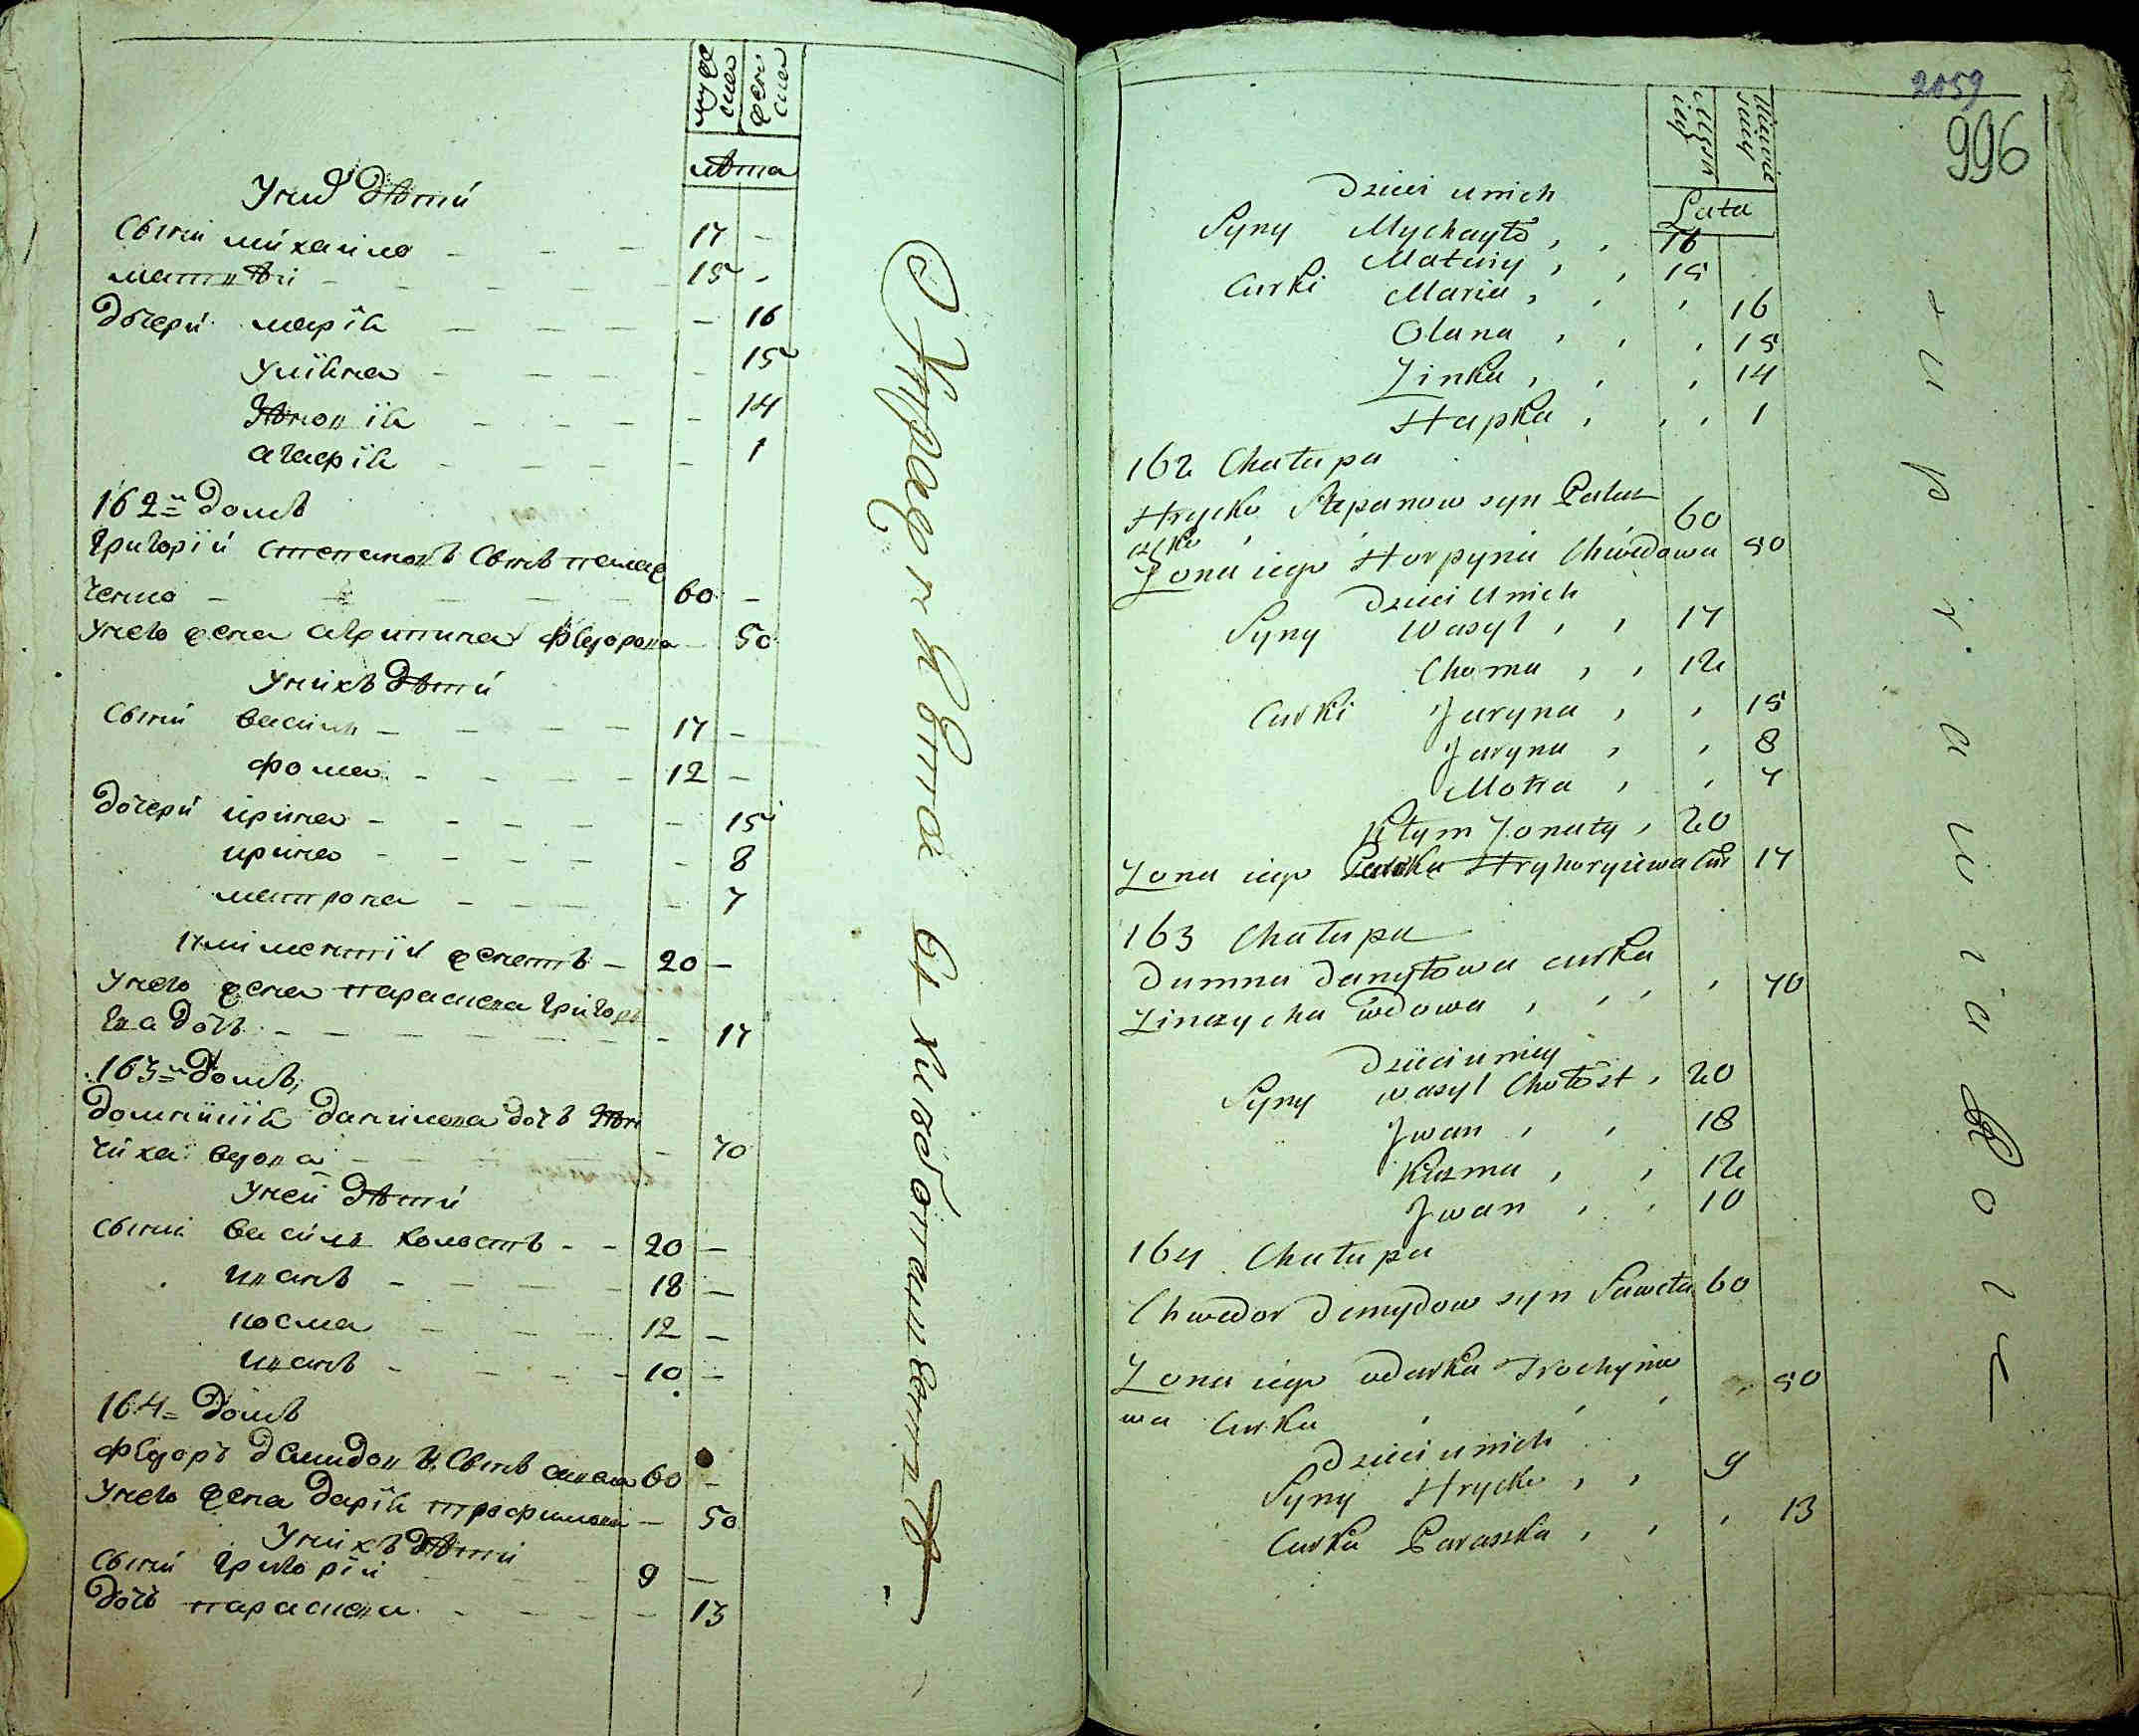 мужеска женска
лѣта
У нихъ дѣти
Сыни михаило - - - 17 -
матвѣй - - - - 15 -
дочери марїя - - - - 16
Улїяна - - - - 15
Зѣновїя - - - - 14
агафїя - - - - 1
162 = домъ
Григорїй степановъ сынъ палаж
ченко - - - - 60 -
У него жена агрипина федорова - 50
У нихъ дѣти
Сыни василь - - - - 17 -
фома - - - - 12 -
дочери ирина - - - - - 15
ирина - - - - 8
матрона - - - - 7
климентїй женатъ - 20 -
У него жена параскева григорі
ева дочь - - - - - - - 17
163 = домъ
домникїя данилова дочь Зѣн
чиха вдова - - - - 70
У ней дѣти
Сыни василь холостъ - - 20 -
иванъ - - - - 18 -
косма - - - 12 -
иванъ - - - - 10 -
164 = домъ
федоръ демидовъ сынъ савела 60 -
У него жена дарїя трофимова - 50
У нихъ дѣти
Сыни григорїй - - - 9 -
дочь параскева - - - - 13
Męzkiey Niewieściey
2059
996
Lata
Dzieci u nich
Syny Mychayło , , 16
Matwiy , , 15
Curki Maria , , , 16
Olana , , , 15
Zinka , , , 14
Hapka , , , 1
162 Chałupa
Hrycko Stepanow syn Palaz
czko , , 60
Zona iego Horpyna Chwedowa 50
Dzieci u nich
Syny Wasyl , , 17
Choma , , 12
Curki Jaryna , , 15
Jaryna , , 8
Motra , , 7
Kłym Zonaty , 20
Zona iego Paraska Hryhoryiewa Cur 17
163 Chałupa
Dumna Danyłowa curka
Zinczycha wdowa , , , , 70
Dzieci u niey
Syny Wasyl Chołost , 20
Jwan , , 18
Kuzma , , 12
Jwan , , 10
164 Chałupa
Chwedor Demydow syn Saweła 60
Zona iego Odarka Trochymo
wa Curka , , , , 50
Dzieci u nich
Syny Hrycko , , 9
Curka Paraszka , , , 13